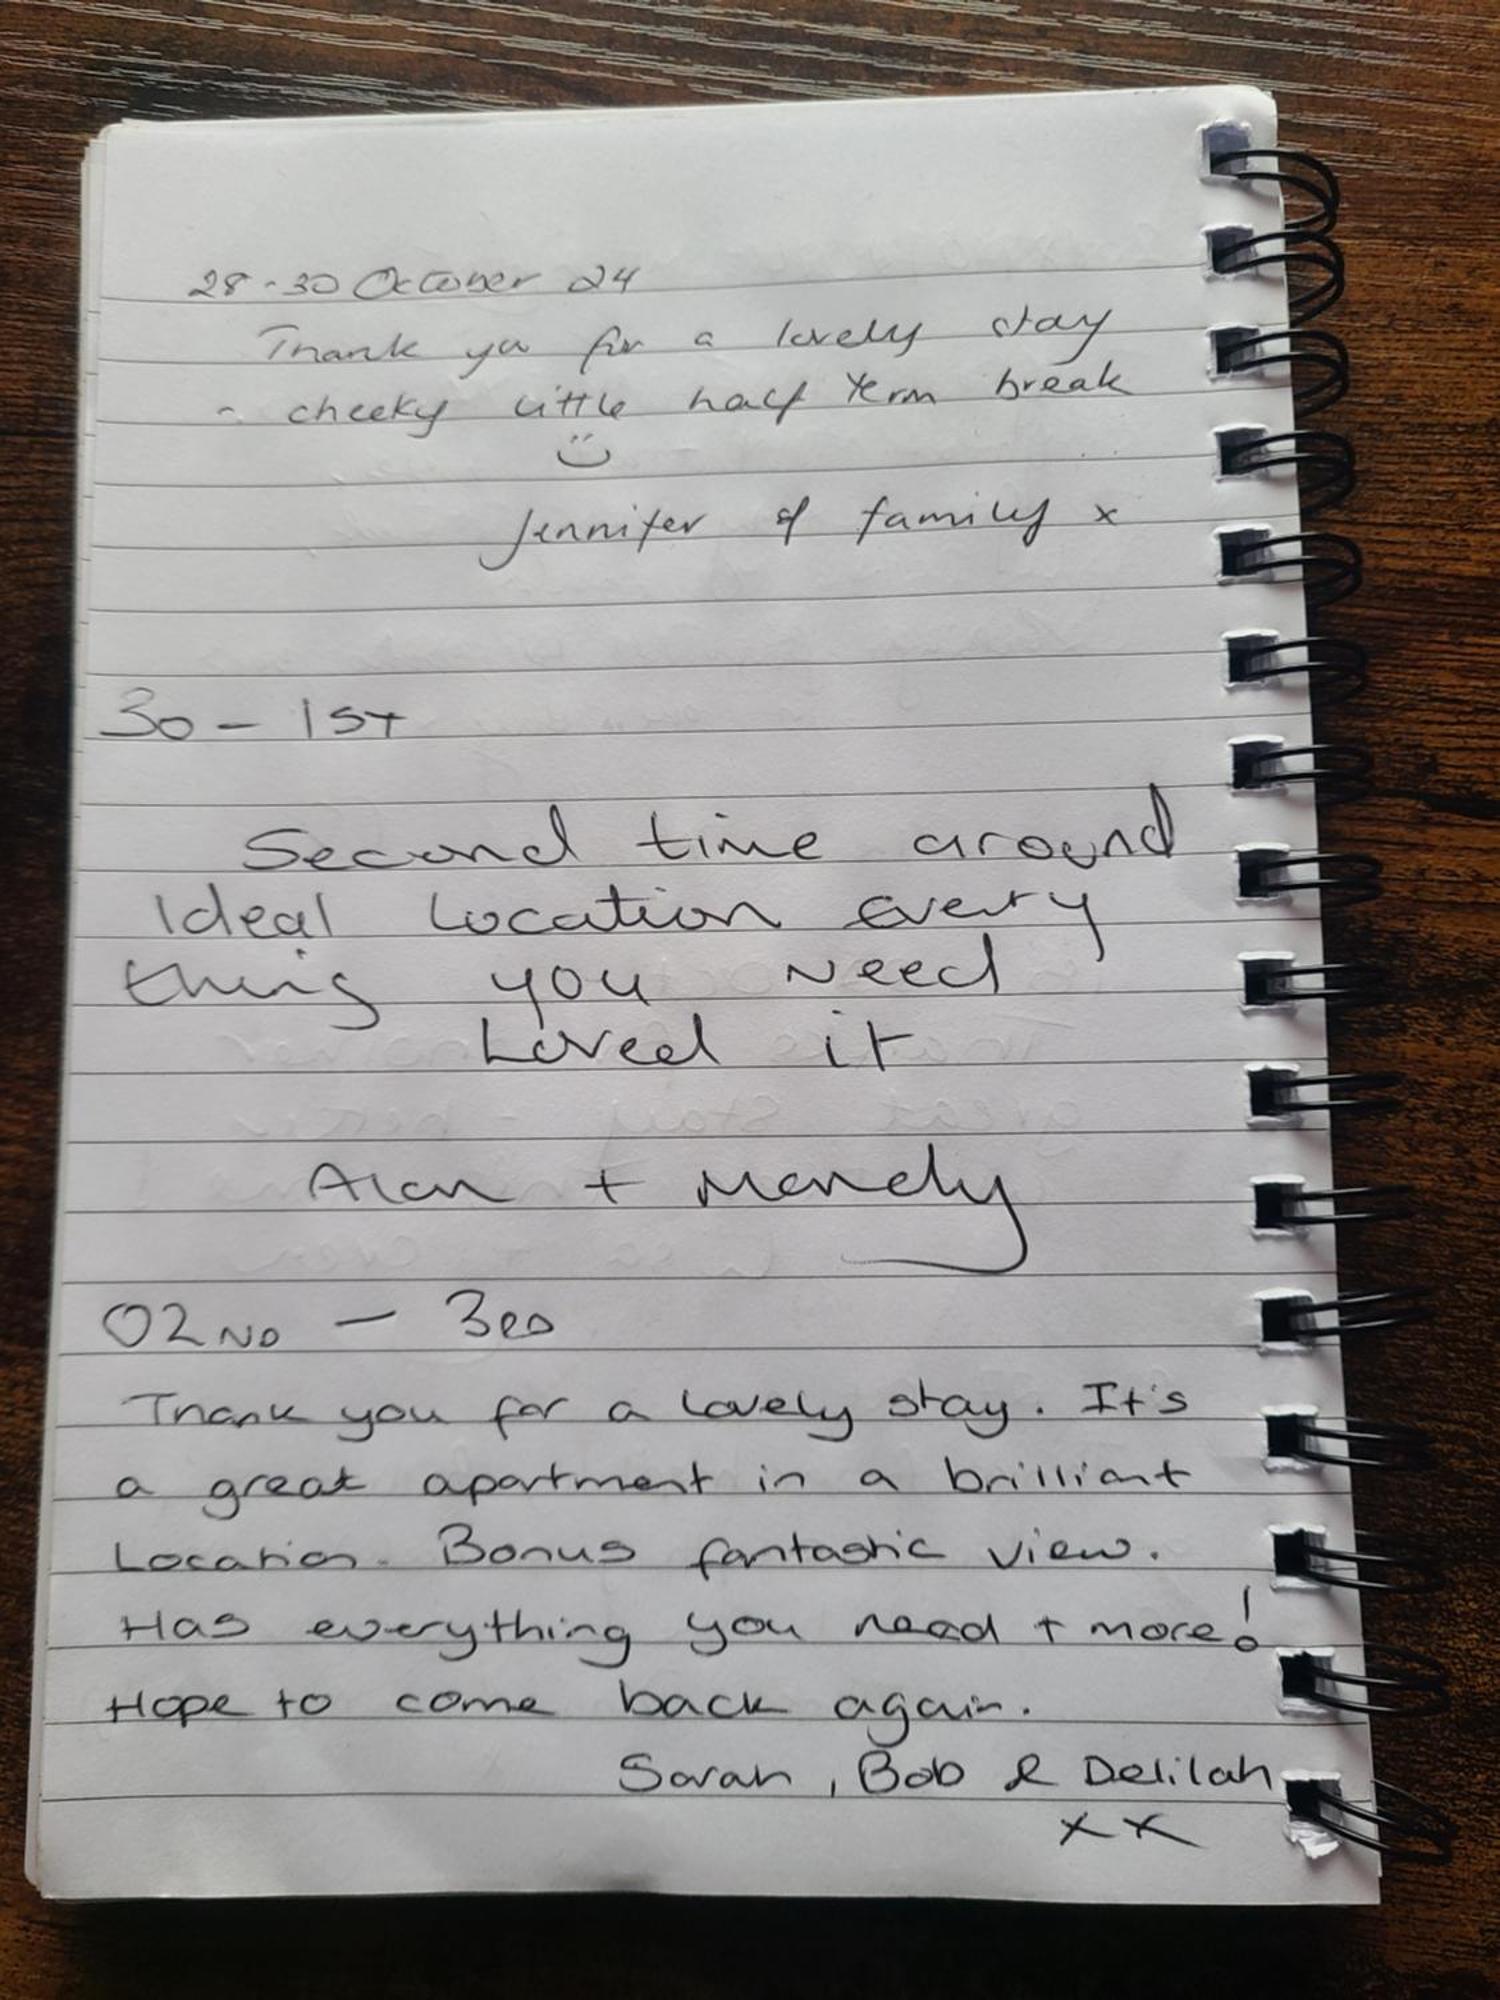 28-30 October 24
Thank you for a lovely stay
- cheeky little half term break
Jennifer & family x
30 - 1ST
Second time around
Ideal Location every
thing you need
Loved it
Alan + Mandy
02ND - 3RD
Thank you for a lovely stay. It's
a great apartment in a brilliant
Location. Bonus fantastic view.
Has everything you need + more!
Hope to come back again.
Sarah, Bob & Delilah
xx